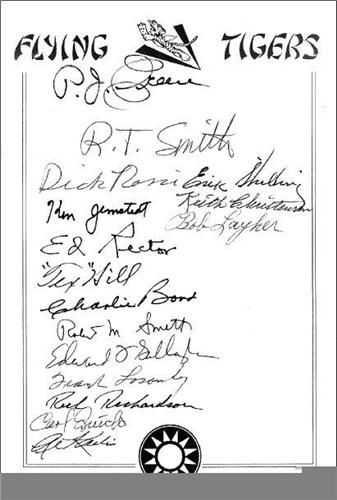 FLYING TIGERS
P.J. Greene
R.T. Smith
Dick Rossi Erik Shilling
Ken Jernstedt Keith Christensen
Bob Layher
Ed Rector
"Tex" Hill
Charlie Bond
Robt M. Smith
Edward Gallagher
Frank Losonsky
Red Richardson
Carl